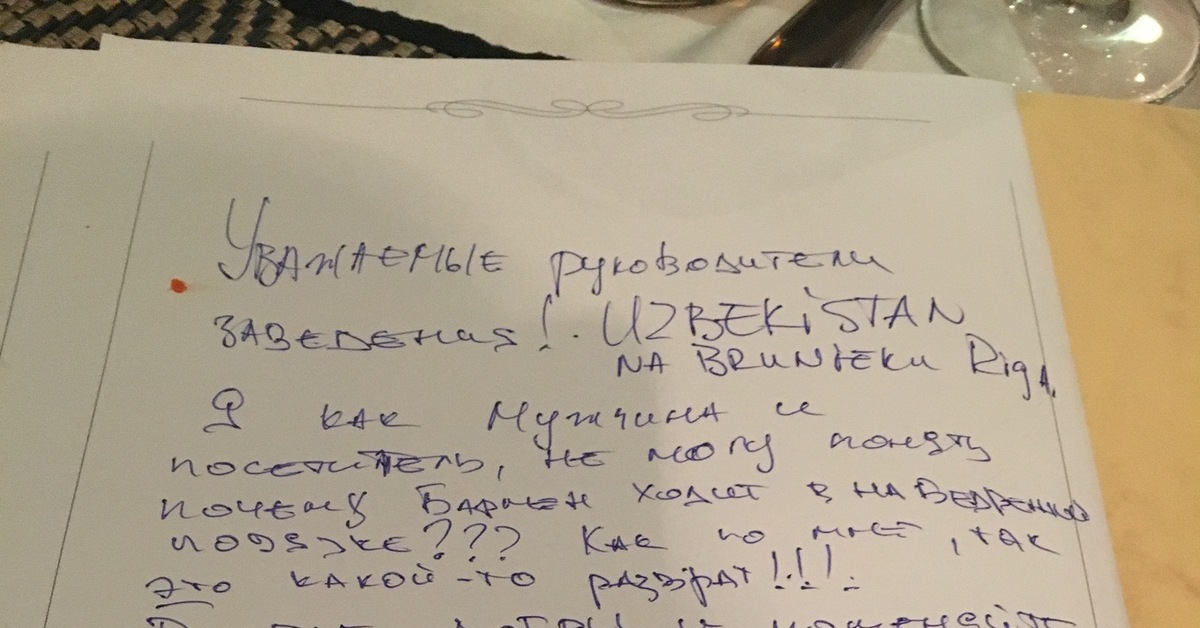 Уважаемые руководители
заведения! UZBEKiSTAN
NA BRUNIEKU RigA.
Я как Мужчина и
посетитель, не могу понять
почему Бармен ходит в на
подяжке??? Как по мне, так
это какой-то разврат!!!